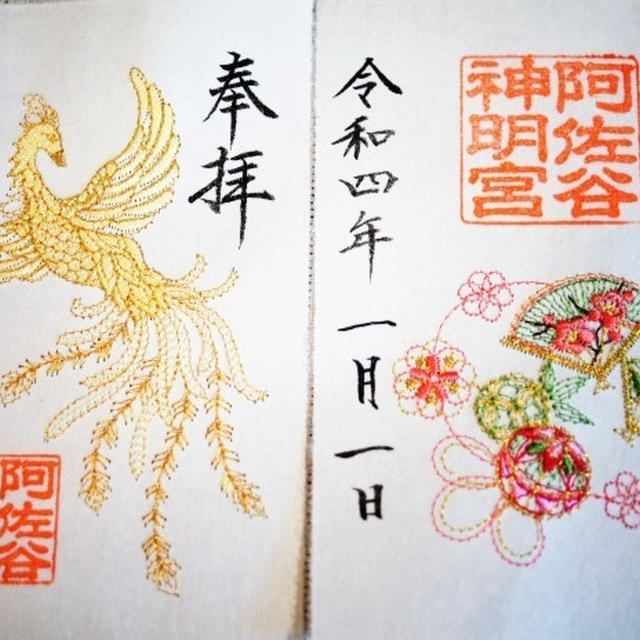 阿佐谷
神明宮
令和四年一月一日
奉拝
阿佐谷